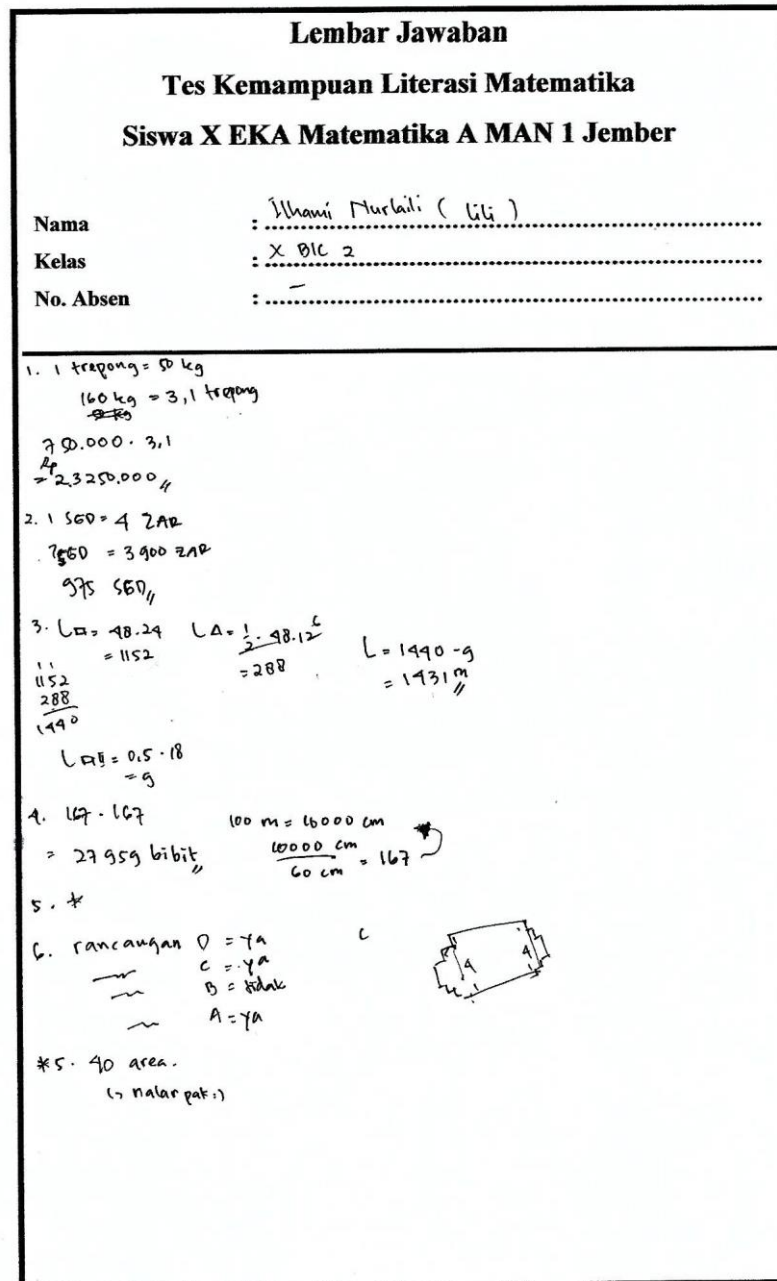 Lembar Jawaban
Tes Kemampuan Literasi Matematika
Siswa X EKA Matematika A MAN 1 Jember
Nama : Ilhami Nurlaili ( lili )
Kelas : X BIC 2
No. Absen : -
1. 1 trepong = 50 kg
160 kg = 3,1 trepong
750.000 . 3,1
Rp
= 2.3250.000 //
2. 1 SGD = 4 ZAR
SGD = 3 900 ZAR
975 SGD //
3. L▭ = 48.24 L△ = 1/2 . 48.12 6 L = 1440 - 9
= 1152 = 288 = 1431 m //
11
1152
288
1440
L = 0,5 . 18
= 9
4. 167 . 167 100 m = 10000 cm
= 27 959 bibit // 10000 cm / 60 cm = 167
5. *
6. rancangan D = ya C
C = ya
B = tidak
A = ya
4 4
*5. 40 area.
↳ nalar pak :)